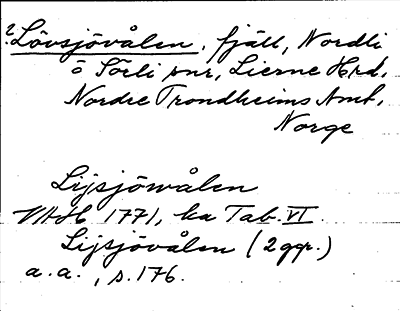 ? Lövsjövålen, fjäll, Nordli
o Sörli snr, Lierne Hrd.
Nordre Trondheims Amt,
Norge
Lijsjöwålen
1771, ka Tab. VI.
Lijsjövålen (2 ggr.)
a. a., s. 176.